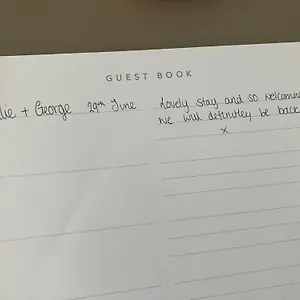 GUEST BOOK
die + George 29th June
Lovely stay and so welcoming
we will definitley be back
x